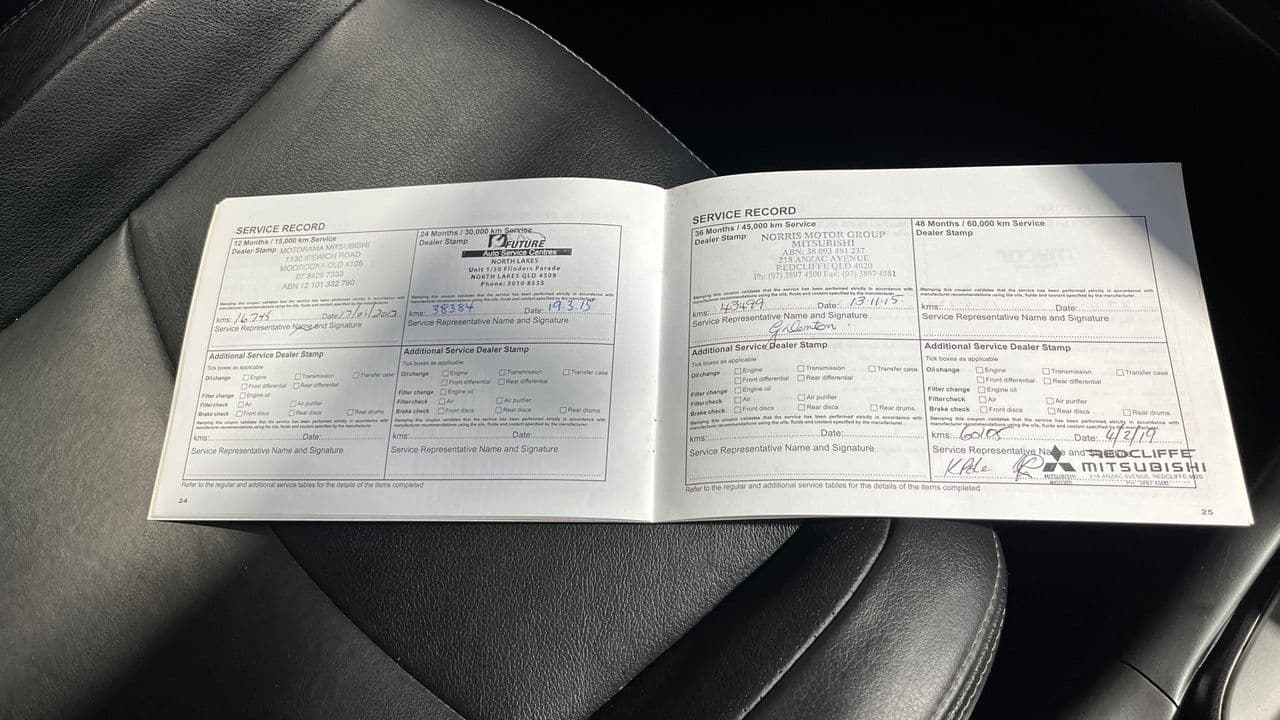 SERVICE RECORD
12 Months / 15,000 km Service
Dealer Stamp MOTORAMA MITSUBISHI
1130 IPSWICH ROAD
MOOROOKA QLD 4105
07 3426 7333
ABN 12 101 332 790
Stamping this coupon validates that the service has been performed strictly in accordance with
manufacturer recommendations using the oils, fluids and coolant specified by the manufacturer.
kms: Date:
Service Representative Name and Signature
Additional Service Dealer Stamp
Tick boxes as applicable
Oil change Engine Transmission Transfer case
Front differential Rear differential
Filter change Engine oil
Filter check Air Air purifier
Brake check Front discs Rear discs Rear drums
Stamping this coupon validates that the service has been performed strictly in accordance with
manufacturer recommendations using the oils, fluids and coolant specified by the manufacturer.
kms: Date:
Service Representative Name and Signature
24 Months / 30,000 km Service
Dealer Stamp
FUTURE
Auto Service Centres
NORTH LAKES
Unit 1/30 Flinders Parade
NORTH LAKES QLD 4509
Phone: 3010 8535
Stamping this coupon validates that the service has been performed strictly in accordance with
manufacturer recommendations using the oils, fluids and coolant specified by the manufacturer.
kms: 38384 Date: 19.3.15
Service Representative Name and Signature
Additional Service Dealer Stamp
Tick boxes as applicable
Oil change Engine Transmission Transfer case
Front differential Rear differential
Filter change Engine oil
Filter check Air Air purifier
Brake check Front discs Rear discs Rear drums
Stamping this coupon validates that the service has been performed strictly in accordance with
manufacturer recommendations using the oils, fluids and coolant specified by the manufacturer.
kms: Date:
Service Representative Name and Signature
Refer to the regular and additional service tables for the details of the items completed
24
SERVICE RECORD
36 Months / 45,000 km Service
Dealer Stamp NORRIS MOTOR GROUP
MITSUBISHI
ABN: 38 093 481 237
218 ANZAC AVENUE
REDCLIFFE QLD 4020
Ph: (07) 3897 4500 Fax: (07) 3897 4581
Stamping this coupon validates that the service has been performed strictly in accordance with
manufacturer recommendations using the oils, fluids and coolant specified by the manufacturer.
kms: 43499 Date: 13-11-15
Service Representative Name and Signature
Additional Service Dealer Stamp
Tick boxes as applicable
Oil change Engine Transmission Transfer case
Front differential Rear differential
Filter change Engine oil
Filter check Air Air purifier
Brake check Front discs Rear discs Rear drums
Stamping this coupon validates that the service has been performed strictly in accordance with
manufacturer recommendations using the oils, fluids and coolant specified by the manufacturer.
kms: Date:
Service Representative Name and Signature
48 Months / 60,000 km Service
Dealer Stamp
Stamping this coupon validates that the service has been performed strictly in accordance with
manufacturer recommendations using the oils, fluids and coolant specified by the manufacturer.
kms: Date:
Service Representative Name and Signature
Additional Service Dealer Stamp
Tick boxes as applicable
Oil change Engine Transmission Transfer case
Front differential Rear differential
Filter change Engine oil
Filter check Air Air purifier
Brake check Front discs Rear discs Rear drums
Stamping this coupon validates that the service has been performed strictly in accordance with
manufacturer recommendations using the oils, fluids and coolant specified by the manufacturer.
kms: Date: 4/2/19
Service Representative Name and
REDCLIFFE
MITSUBISHI
MITSUBISHI MOTORS
218 ANZAC AVENUE, REDCLIFFE 4020
PH: 3897 4500
Refer to the regular and additional service tables for the details of the items completed
25